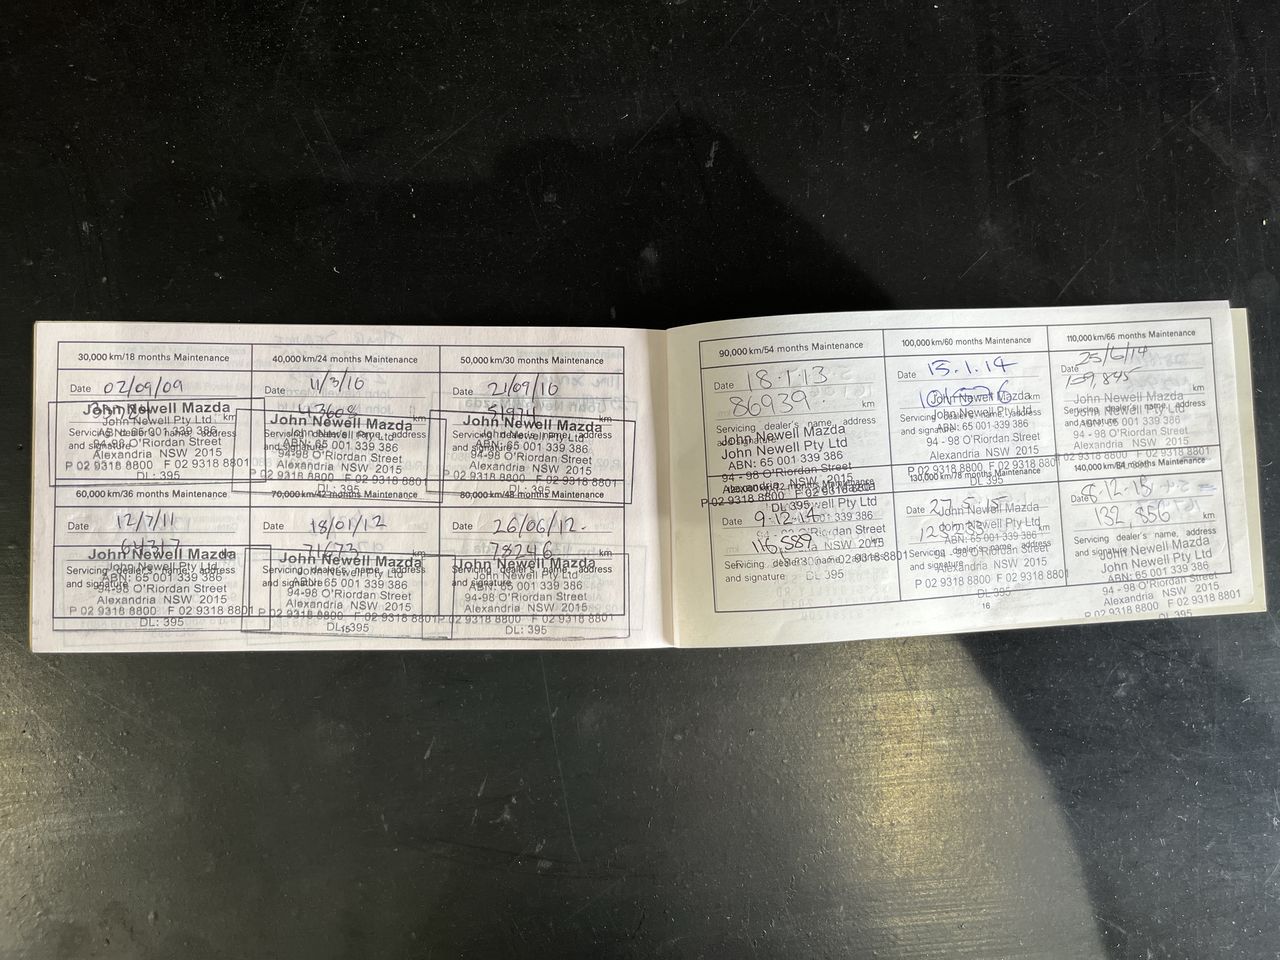 30,000 km/18 months Maintenance
Date 02/09/09
km
John Newell Mazda
John Newell Pty Ltd
Servicing dealer's name, address
and signature
ABN: 65 001 339 386
94-98 O'Riordan Street
Alexandria NSW 2015
P 02 9318 8800 F 02 9318 8801
DL: 395
40,000 km/24 months Maintenance
Date 11/3/10
John Newell Mazda
John Newell Pty Ltd
Servicing dealer's name, address
and signature
ABN: 65 001 339 386
94-98 O'Riordan Street
Alexandria NSW 2015
P 02 9318 8800 F 02 9318 8801
DL: 395
50,000 km/30 months Maintenance
Date 21/09/10
km
John Newell Mazda
John Newell Pty Ltd
Servicing dealer's name, address
and signature
ABN: 65 001 339 386
94-98 O'Riordan Street
Alexandria NSW 2015
P 02 9318 8800 F 02 9318 8801
DL: 395
60,000 km/36 months Maintenance
Date 12/7/11
John Newell Mazda
John Newell Pty Ltd
Servicing dealer's name, address
and signature
ABN: 65 001 339 386
94-98 O'Riordan Street
Alexandria NSW 2015
P 02 9318 8800 F 02 9318 8801
DL: 395
70,000 km/42 months Maintenance
Date 18/01/12
km
John Newell Mazda
John Newell Pty Ltd
Servicing dealer's name, address
and signature
ABN: 65 001 339 386
94-98 O'Riordan Street
Alexandria NSW 2015
P 02 9318 8800 F 02 9318 8801
DL: 395
80,000 km/48 months Maintenance
Date 26/06/12.
78246 km
John Newell Mazda
John Newell Pty Ltd
Servicing dealer's name, address
and signature
ABN: 65 001 339 386
94-98 O'Riordan Street
Alexandria NSW 2015
P 02 9318 8800 F 02 9318 8801
DL: 395
15
90,000 km/54 months Maintenance
Date 18.1.13
86939 km
Servicing dealer's name, address
and signature
John Newell Mazda
John Newell Pty Ltd
ABN: 65 001 339 386
94 - 98 O'Riordan Street
Alexandria NSW 2015
P 02 9318 8800 F 02 9318 8801
DL 395
100,000 km/60 months Maintenance
Date 15.1.14
km
John Newell Mazda
John Newell Pty Ltd
Servicing dealer's name, address
and signature
ABN: 65 001 339 386
94 - 98 O'Riordan Street
Alexandria NSW 2015
P 02 9318 8800 F 02 9318 8801
DL 395
110,000 km/66 months Maintenance
Date 25/6/14
km
John Newell Mazda
John Newell Pty Ltd
Servicing dealer's name, address
and signature
ABN: 65 001 339 386
94 - 98 O'Riordan Street
Alexandria NSW 2015
P 02 9318 8800 F 02 9318 8801
months Maintenance
Date 9.12.14
116,589
Servicing dealer's name
and signature
DL 395
130,000 km/78 months Maintenance
Date 27.5.15
km
John Newell Mazda
John Newell Pty Ltd
Servicing dealer's name, address
and signature
ABN: 65 001 339 386
94 - 98 O'Riordan Street
Alexandria NSW 2015
P 02 9318 8800 F 02 9318 8801
DL 395
140,000 km/84 months Maintenance
Date 12.15
132,856 km
Servicing dealer's name, address
and signature
John Newell Mazda
John Newell Pty Ltd
ABN: 65 001 339 386
94 - 98 O'Riordan Street
Alexandria NSW 2015
P 02 9318 8800 F 02 9318 8801
DL 395
16